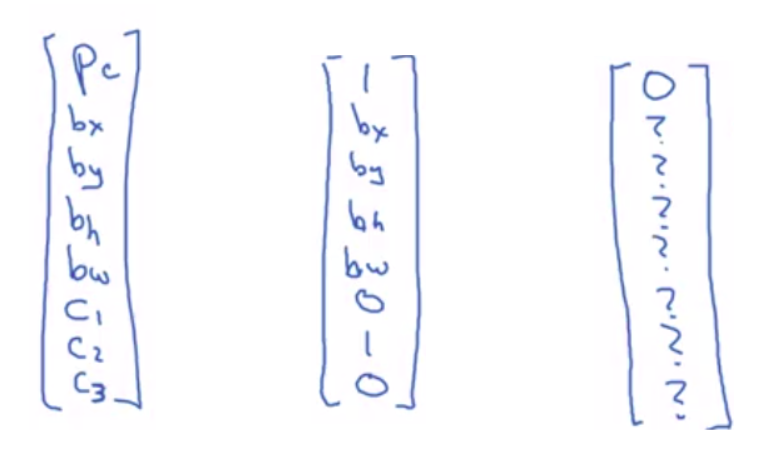 Pc
bx
by
bh
bw
C1
C2
C3
1
bx
by
bh
bw
0
1
0
0
?
?
?
?
?
?
?